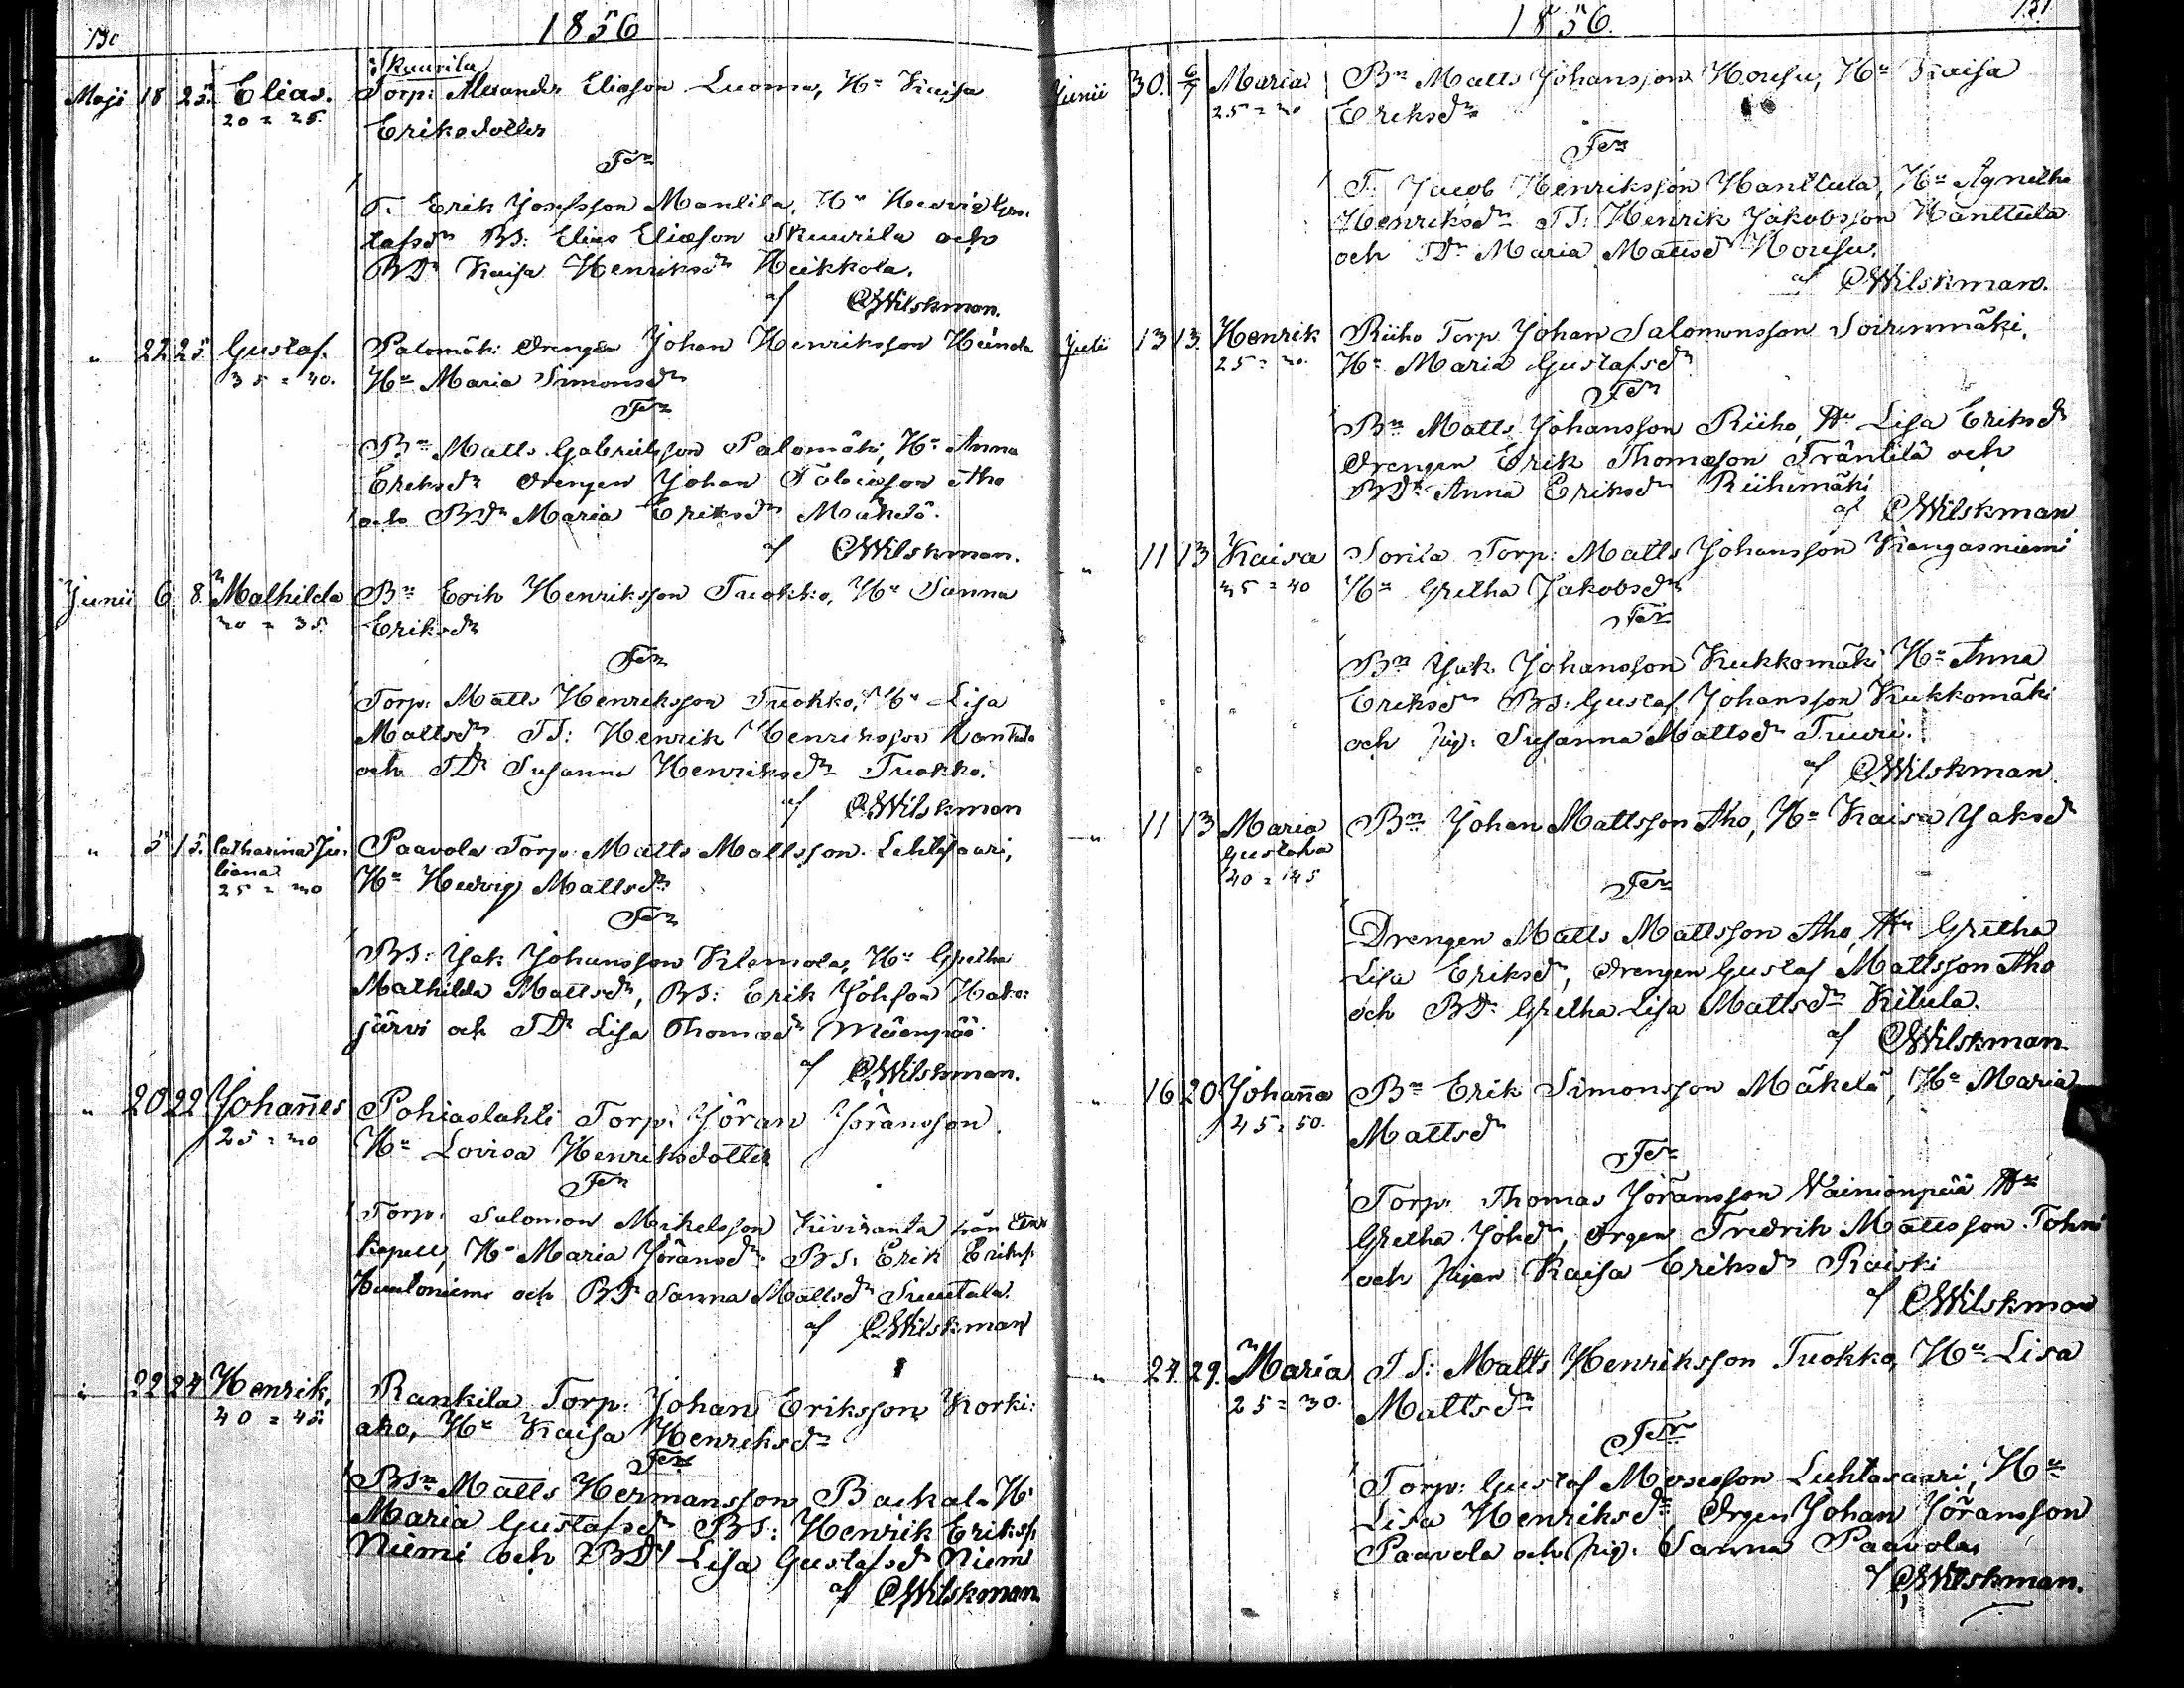 130
1856
Maji 18 25. Elias. Skuurila
20 = 25. Torp: Alexander Eliasson Luoma, Hu Kaisa
Eriksdotter
Fer
T. Erik Josefsson Manlila, Hu Hedvig Gus-
tafsdr BS: Elias Eliasson Skuurila och
BDr Kaisa Henriksdr Heikkola.
af CWilskman.
" 22 25 Gustaf. Palomäki Drengen Johan Henriksson
35 = 40. Hu Maria Simonsdr
Fer
Bn Matts Gabrielsson Palomäki, Hu Anna
Eriksdr Drengen Johan Tobiasson Aho
och BDr Maria Eriksdr Mäkelä.
af CWilskman.
Junii 6 8. Mathilda Bn Erik Henriksson Tuokko, Hu Sanna
30 = 35. Eriksdr
Fer
Torp: Matts Henriksson Tuokko, Hu Lisa
Mattsdr TS: Henrik Henriksson
och TDr Susanna Henriksdr Tuokko.
af CWilskman
" 5 15. Catharina Ju- Paavola Torp: Matts Mattsson Lehtisaari,
liana
25 = 30 Hu Hedvig Mattsdr
Fer
BS: Jak Johansson Klemola, Hu Gretha
Mathilda Mattsdr, BS: Erik Johsson Hako-
järvi och TDr Lisa Thomasdr Mäenpää.
af CWilskman.
" 20 22 Johannes Pohiaslahti Torp: Jöran Jöransson.
25 = 30 Hu Lovisa Henriksdotter
Fer
Torp: Salomon Mikelsson Kiviranta från
Kapell, Hu Maria Jöransdr BS: Erik Eriks:
Huutoniemi och BDr Sanna Mattsdr Suutala.
af CWilskman
" 22 24 Henrik, Rankila Torp: Johan Eriksson Korki-
40 = 45. ako, Hu Kaisa Henriksdr
Fer
BSn Matts Hermansson Backala Hu
Maria Gustafsdr BS: Henrik Eriks:
Niemi och BDr Lisa Gustafsdr Niemi
af CWilskman.
1856.
131
Junii 30. 6/7 Maria Bn Matts Johansson Houfu, Hu Kaisa
25 = 30 Eriksdr
Fer
T. Jacob Henriksson Hanttula, Hu Agnetha
Henriksdr TS: Henrik Jakobsson Hanttula
och TDr Maria Mattsdr Houfu.
af CWilskman.
Julii 13 13. Henrik Riiho Torp Johan Salomonsson Soirinmäki,
25 = 30. Hu Maria Gustafsdr
Fer
Bn Matts Johansson Riiho, Hu Lisa Eriksdr
Drengen Erik Thomasson Träntilä och
BDr Anna Eriksdr Riihimäki
af CWilskman
" 11 13 Kaisa Sorila Torp: Matts Johansson Kangasniemi
35 = 40 Hu Gretha Jakobsdr
Fer
Bn Jak Johansson Kukkomäki Hu Anna
Eriksdr BS: Gustaf Johansson Kukkomäki
och Pig: Susanna Mattsdr Tuuri.
af CWilskman
" 11 13 Maria Bn Johan Mattsson Aho, Hu Kaisa Jaksdr
Gustava
40 = 45
Fer
Drengen Matts Mattsson Aho, Hu Gretha
Lisa Eriksdr, Drengen Gustaf Mattsson Aho
och BDr Gretha Lisa Mattsdr Kitula.
af CWilskman.
" 16 20 Johanna Bn Erik Simonsson Mäkelä, Hu Maria
45 = 50. Mattsdr
Fer
Torp: Thomas Jöransson Vainionpää Hu
Gretha Johdr, Drgen Fredrik Mattsson
och Pigan Kaisa Eriksdr Raiski
af CWilskman
" 24. 29. Maria TS: Matts Henriksson Tuokko, Hu Lisa
25 = 30. Mattsdr
Fer
Torp: Gustaf Mosesson Luhtasaari, Hu
Lisa Henriksdr Drgen Johan Jöransson
Paavola och Pig: Sanna Paavola,
af CWilskman.